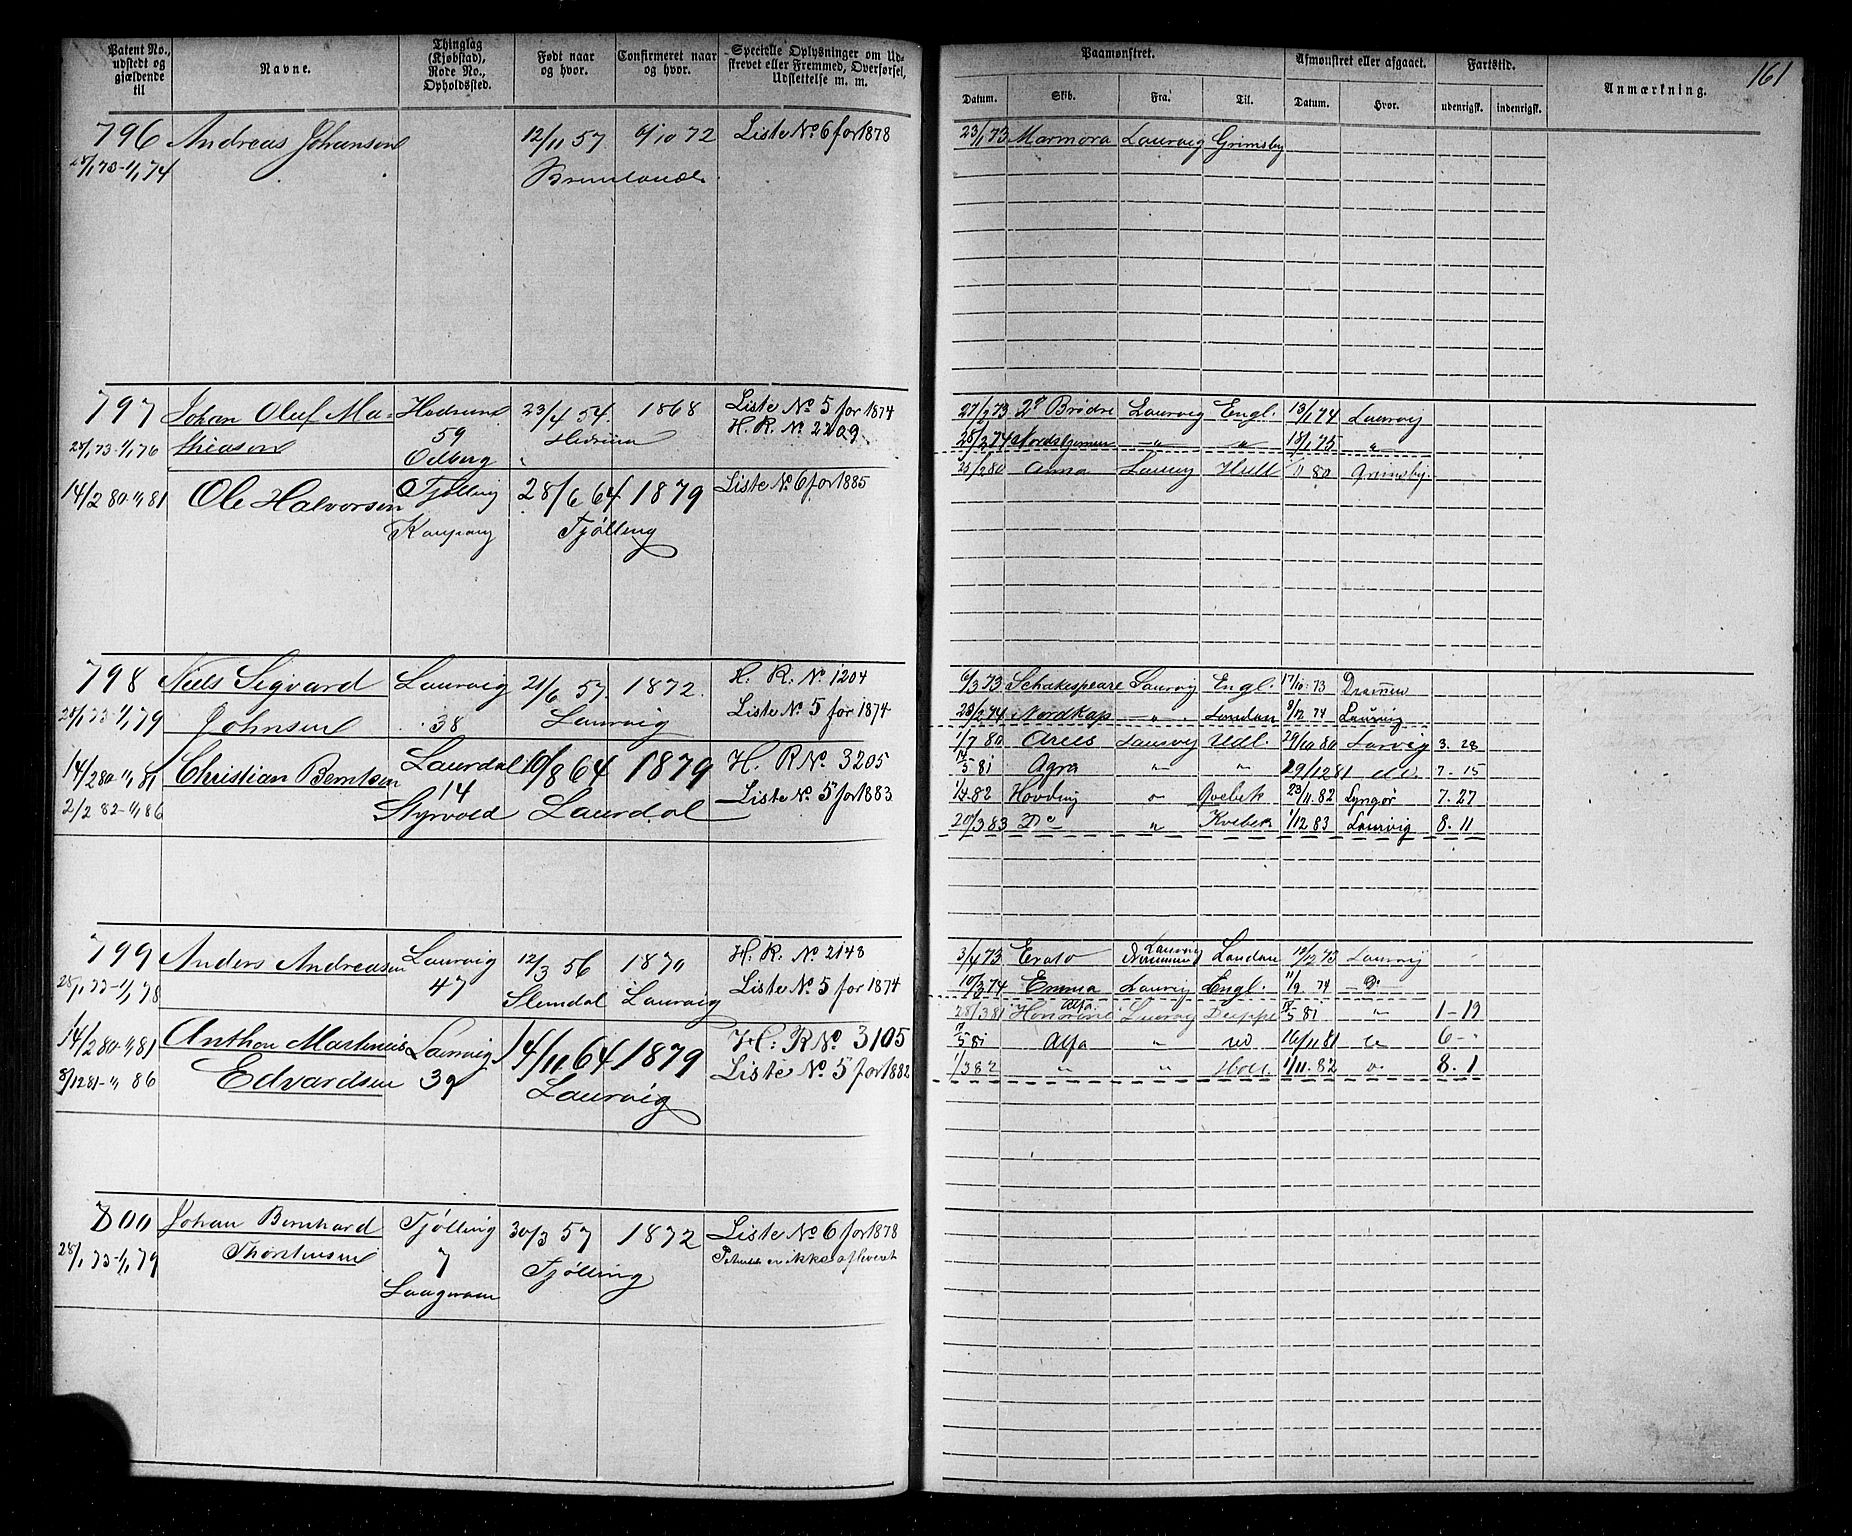 161
Patent No., udstedt og gjældende til
Navne.
Thinglag (Kjøbstad), Rode No., Opholdssted.
Født naar og hvor.
Confirmeret naar og hvor.
Specielle Oplysninger om Udskrevet eller Fremmed, Overførsel, Udslettelse m. m.
Paamønstret.
Afmønstret eller afgaaet.
Fartstid.
Anmærkning.
Datum. Skib. Fra. Til. Datum. Hvor. udenrigsk. indenrigsk.
796 Andreas Johansen 12/11 57 6/10 72 Liste No 6 for 1878
Brunlanes
23/1 73 Marmora Laurvig Grimsby
797 Johan Oluf Ma- Hedrum 23/4 54 1868 Liste No 5 for 1874
thiasen 59 Hedrum H. R. No 2209
Odberg
27/2 73 2de Brødre Laurvig Engl. 13/1 74 Laurvig
25/2 74 Nordstjernen -"- " 18/1 75 "
Anna Laurvig Hull 80 Grimsby
14/2 80-1/1 81 Ole Halvorsen Tjølling 28/6 64 1879 Liste No 6 for 1885
Kaupang Tjølling
798 Niels Sigvard Laurvig 21/6 57 1872. H. R. No 1204
Johnsen 38 Laurvig Liste No 5 for 1874
6/3 73 Schakespeare Laurvig Engl. 17/10 73 Drammen
Nordkap -"- London 9/12 74 Laurvig
14/2 80-1/1 81 Christian Berntsen Laurdal 10/8 64 1879 H. R No 3205
2/2 82-1/1 86 14 Liste No 5 for 1883
Styrvold Laurdal
1/7 80 Laurvig Udl. 29/10 80 Larvig 3. 28
5 81 Agra " " 29/12 81 7. 15
82 Hovding Qvebek 23/11 82 Lyngør 7. 27
20/3 83 Do " Kvebek 1/12 83 Laurvig 8. 11
799 Anders Andreasen Laurvig 12/3 56 1870 H. R. No 2143
47 Slemdal Laurvig Liste No 5 for 1874
3/4 73 Erato Laurvig London 12/12 73 Laurvig
10/3 74 Emma Laurvig Engl. 11/9 74 - Do -
14/2 80-1/1 81 Anthon Martinius Laurvig 14/11 64 1879 H. R No 3105
8/12 81-1/1 86 Edvardsen 39 Laurvig Liste No 5 for 1882
28/3 81 Alfa Laurvig Dieppe 5 81 " 1-19
5 81 Alfa " 16/11 81 6 -
1/3 82 " " 1/11. 82 8. 1
800 Johan Bernhard Tjølling 30/3 57 1872 Liste No 6 for 1878
Thorstensen 7 Tjølling Patentet er ikke afleveret